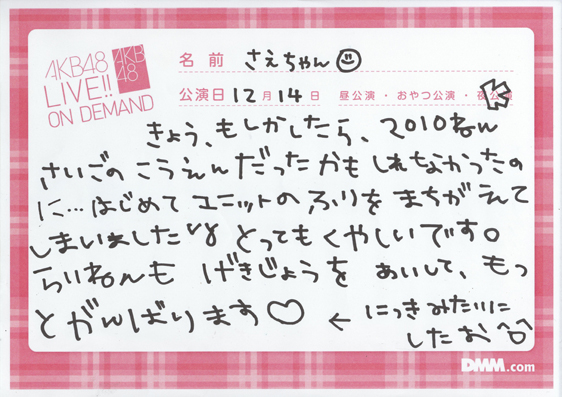 AKB48
LIVE!!
ON DEMAND
AKB
48
名前 さえちゃん
公演日 12月14日 昼公演・おやつ公演・夜公演
きょう、もしかしたら、2010ねん
さいごのこうえんだったかもしれなかったの
に…はじめてユニットのふりをまちがえて
しまいました とってもくやしいです。
らいねんも げきじょうを あいして、もっ
とがんばります♡ ← にっきみたいに
したお
DMM.com